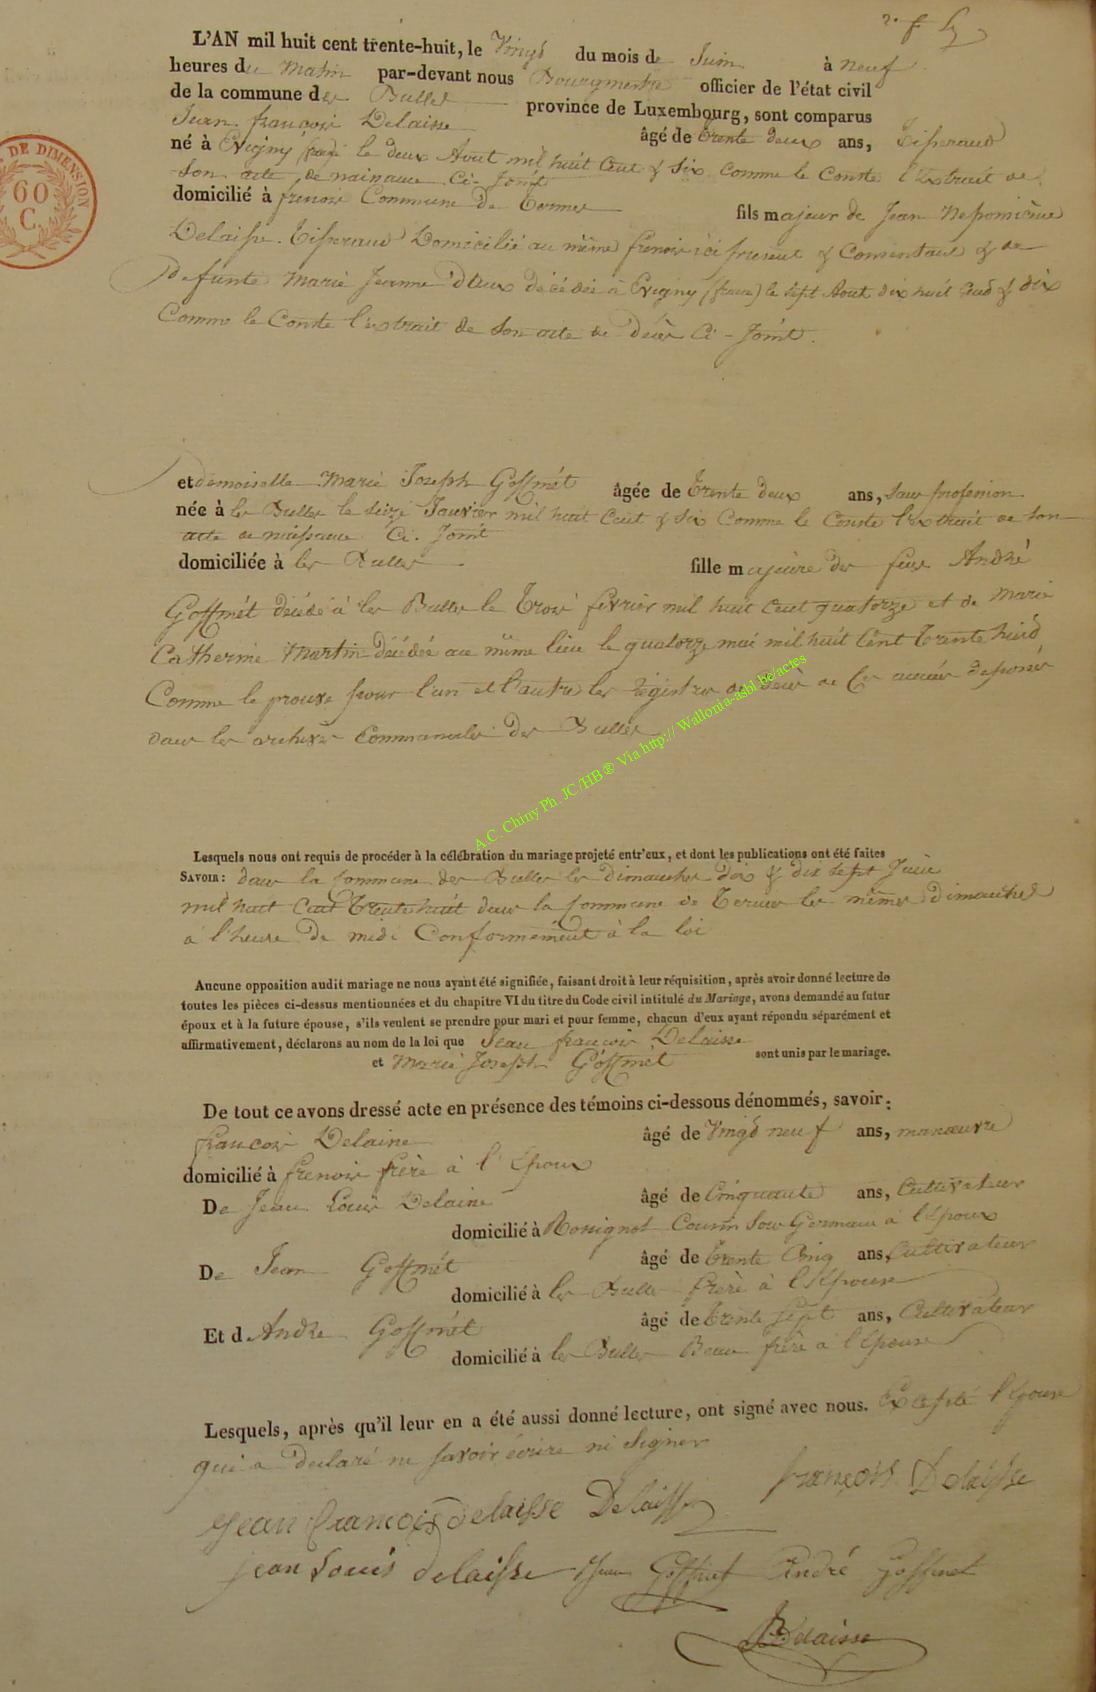 L'AN mil huit cent trente-huit, le Vingt du mois de Juin à neuf
heures du matin par-devant nous Bourgmestre officier de l'état civil
de la commune des Bulles province de Luxembourg, sont comparus
Jean françois Delaisse âgé de trente deux ans, Tisserand
né à Evigny le deux Aout mil huit Cent & six comme le Conste l'Extrait de
son acte de naissance Ci-Joint
domicilié à frenois Commune de Termes fils majeur de Jean Nepomucene
Delaisse Tisserand Domicilié au même frenois ici present & Consentant & de
défunte Marie Jeanne décédée à Evigny (france) le sept Aout dix huit Cent & dix
Comme le Conste l'extrait de son acte de décès Ci-Joint.
et demoiselle Marie Joseph Goffinét âgée de trente deux ans, sans profession
née à les Bulles le seize Janvier mil huit Cent & six Comme le Conste l'extrait de son
acte de naissance Ci-Joint
domiciliée à les Bulles fille majeure des feus André
Goffinét décédé à les Bulles le trois février mil huit Cent quatorze et de Marie
Catherine Martin décédée au même lieu le quatorze mai mil huit Cent trente huit
Comme le prouve pour l'un et l'autre les registres de décès de ces années déposés
dans les archives Communales des Bulles
A.C. Chiny Ph. JC/HB® Via http:// Wallonia-asbl.be/actes
Lesquels nous ont requis de procéder à la célébration du mariage projeté entr'eux, et dont les publications ont été faites
SAVOIR: dans la commune des Bulles les dimanches dix & dix sept Juin
mil huit Cent trente huit dans la Commune de Termes les mêmes dimanches
à l'heure de midi Conformément à la loi
Aucune opposition audit mariage ne nous ayant été signifiée, faisant droit à leur réquisition, après avoir donné lecture de
toutes les pièces ci-dessus mentionnées et du chapitre VI du titre du Code civil intitulé du Mariage, avons demandé au futur
époux et à la future épouse, s'ils veulent se prendre pour mari et pour femme, chacun d'eux ayant répondu séparément et
affirmativement, déclarons au nom de la loi que Jean françois Delaisse
et Marie Joseph Goffinét sont unis par le mariage.
De tout ce avons dressé acte en présence des témoins ci-dessous dénommés, savoir:
françois Delaisse âgé de Vingt neuf ans, manœuvre
domicilié à frenois frère à l'époux
De Jean Louis Delaisse âgé de Cinquante ans, Cultivateur
domicilié à Rossignol Cousin sous Germain à l'époux
De Jean Goffinét âgé de trente Cinq ans, Cultivateur
domicilié à les Bulles frère à l'épouse
Et d'André Goffinét âgé de trente sept ans, Cultivateur
domicilié à les Bulles Beau frère à l'épouse
Lesquels, après qu'il leur en a été aussi donné lecture, ont signé avec nous. Excepté l'épouse
qui a declaré ne savoir écrire ni signer
jean francois delaisse Delaisse françois Delaisse
jean Louis delaisse Jean Goffinet André Goffinet
Delaisse
DE DIMENSION
60
C.